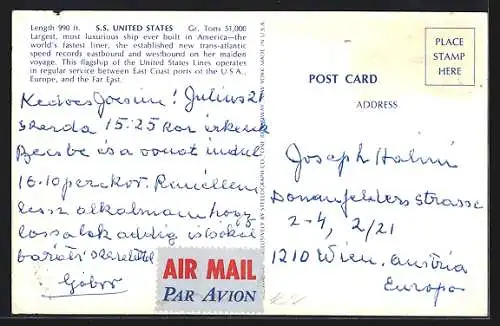 Length 990 ft. S.S. UNITED STATES Gr. Tons 51,000
Largest, most luxurious ship ever built in America—the
world's fastest liner, she established new trans-atlantic
speed records eastbound and westbound on her maiden
voyage. This flagship of the United States Lines operates
in regular service between East Coast ports of the U S A,
Europe, and the Far East.
Kedves Joesim! Julius 21
szerda 15:25 kor érkezek
Bécsbe és a vonat indul
16.10 perckor. Remélem
lesz alkalmam hogy
lássalak addig is sok
baráti szeretettel
Gábor
AIR MAIL
PAR AVION
PLACE
STAMP
HERE
POST CARD
ADDRESS
Joseph Halmi
Donaufelderstrasse
2-4, 2/21
1210 Wien. Austria
Europa